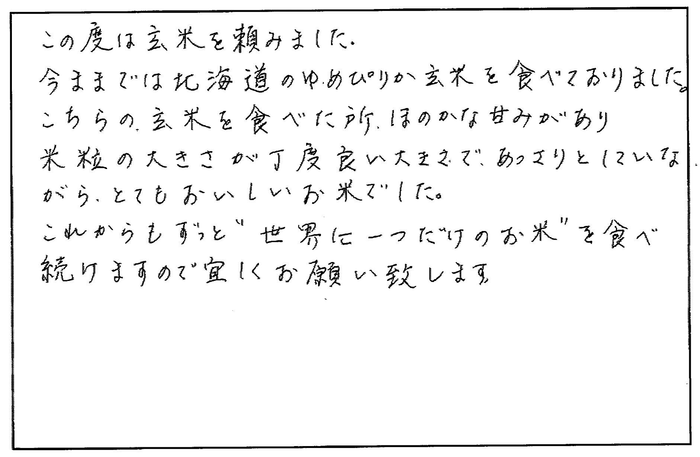 この度は玄米を頼みました.
今まではは北海道のゆめぴりか玄米を食べておりました。
こちらの、玄米を食べた所、ほのかな甘みがあり
米粒の大きさが丁度良い大きさで、あっさりとしていな
がら、とてもおいしいお米でした。
これからもずっと“世界に一つだけのお米”を食べ
続けますので宜しくお願い致します